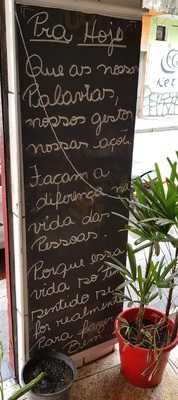 Pra Hoje
Que as nossas
Palavras,
nossos gestos
nossas açõ
Façam a
diferença na
vida das
Pessoas.
Porque essa
vida só tem
sentido se
for realmente
Para fazer
Bem